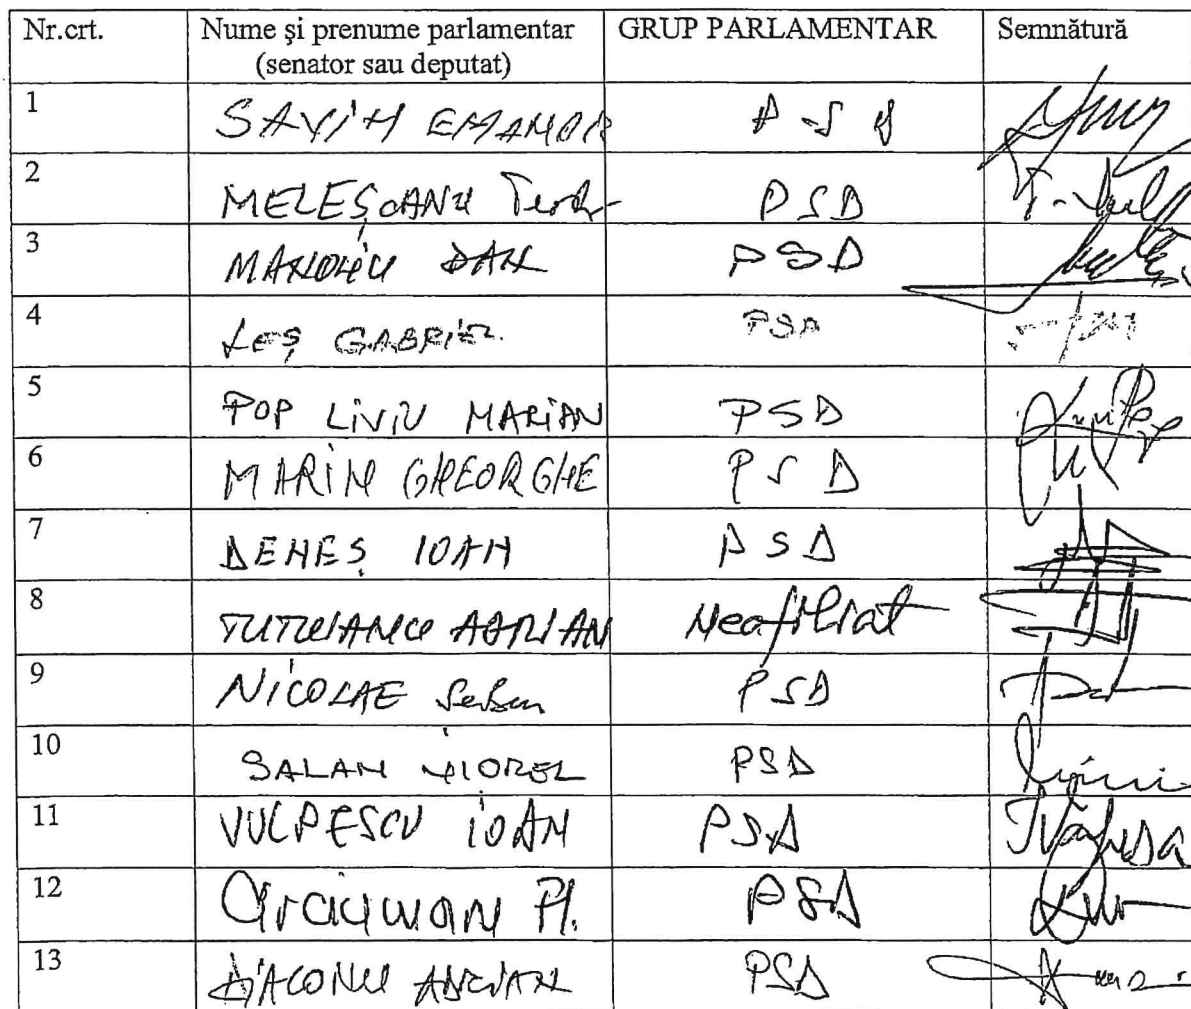 Nr.crt. Nume și prenume parlamentar GRUP PARLAMENTAR Semnătură
(senator sau deputat)
1 SAVIN EMANOIL PSD
2 MELEȘCANU Teodor PSD
3 MANOLIU DAN PSD
4 LEȘ GABRIEL PSD
5 POP LIVIU MARIAN PSD
6 MARIN GHEORGHE PSD
7 DENEȘ IOAN PSD
8 TUTUIANU ADRIAN Neafiliat
9 NICOLAE Serban PSD
10 SALAN VIOREL PSD
11 VULPESCU IOAN PSD
12 PSD
13 DIACONU ADRIAN PSD